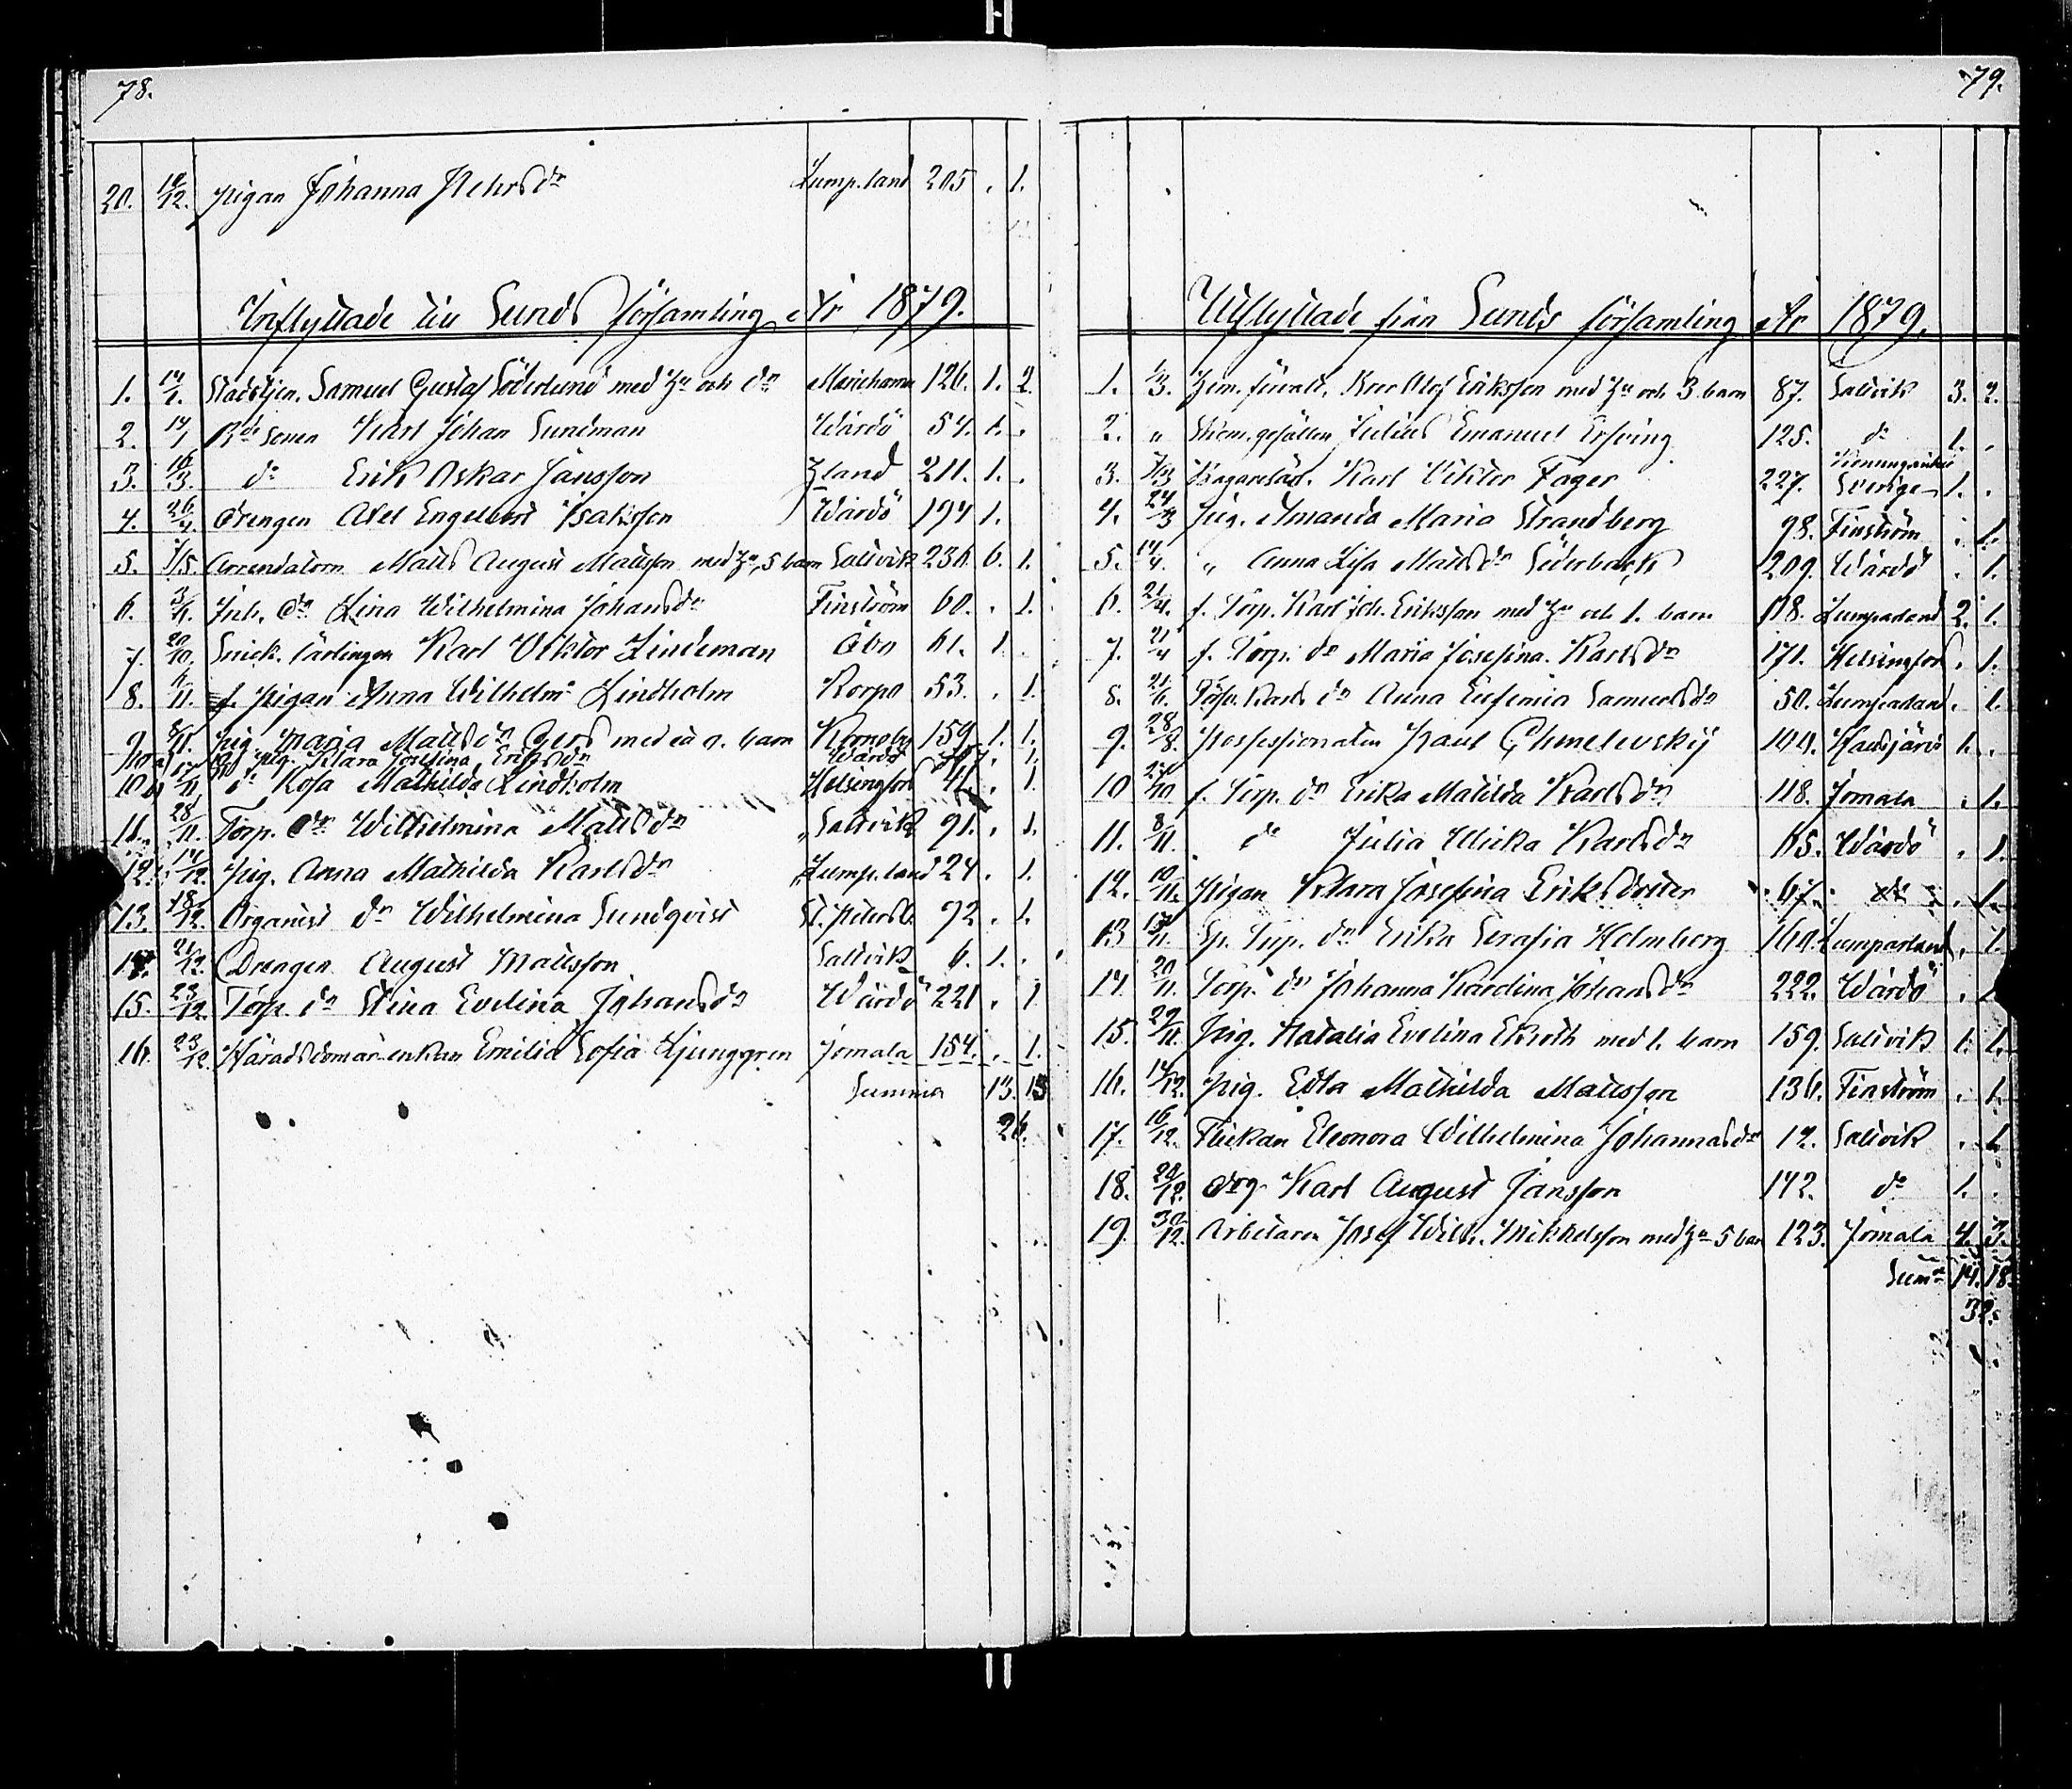 78.
20. 19/12. pigan Johanna Pehrsdr Lumpland 205 . 1.
Inflyttade till Sunds församling År 1879.
1. 14/1. Stadstjen. Samuel Gustaf Söderlund med hu och dr Mariehamn 126. 1. 2.
2. 14/1 Bde Sonen Karl Johan Sundman Wårdö 54. 1. .
3. 16/3. do Erik Oskar Jansson 211. 1. .
4. 26/4. drengen Axel Engelbert Isaksson Wårdö 194 1.
5. 1/5. Arrendatorn Matts August Mattsson med hu, 5 barn Saltvik 236. 6. 1.
6. Inh. dr Lina Wilhelmina Johansdr Finström 60. . 1.
7. 20/10. Snick. lärlingen Karl Viktor Lindeman Åbo 61. 1 .
8. f. pigan Anna Wilhelma Lindholm Korpo 53. . 1.
9. pig. Maria Mattsdr Gers med ett o. barn Kronoby 159 1. 1.
10 a) pig. Klara Josefina Eriksdr Wårdö 1.
10 b) 17/11. do Rosa Mathilda Lindholm Helsingfors 41. . 1.
11. 28/11. Torp. dr Wilhelmina Mattsdr Saltvik 91. . 1.
12. 14/12. pig. Anna Mathilda Karlsdr Lumpland 24. . 1.
13. 18/12. Organist dr Wilhelmina Sundqvist St. Petersb. 92 . 1.
14. 21/12. Drengen August Mattsson Saltvik 6. 1. .
15. 23/12. Torp. dr Stina Evelina Johansdr Wårdö 221 . 1
16. 23/12. Häradsdomar enkan Emilia Sofia Ljunggren Jomala 154. . 1.
Summa 13. 13
26.
79.
Utflyttade från Sunds församling År 1879.
1. 1/3. Olof Eriksson med hu och 3 barn 87. Saltvik 3. 2.
2. " Julius Emanuel Erfving 125. do 1. .
3. Bagarelär. Karl Viktor Fager 227. Sverige 1. .
4. 24/3 pig. Amanda Maria Strandberg 98. Finström . 1.
5. 14/4. " Anna Lisa Mattsdr Söderback 209. Wårdö . 1.
6. 21/4. f. Torp. Karl Joh. Eriksson med hu och 1. barn 118. Lumparland 2. 1.
7. 21/4 f. Torp. dr Maria Josefina Karlsdr 171. Helsingfors . 1.
8. 21/6. Torp. Karls dr Anna Eufemia Samuelsdr 50. Lumparland . 1.
9. 28/8. Possessionaten Paul Chmelevskij 144. Hausjärvi 1. .
10 f. Torp. dr Erika Matilda Karlsdr 118. Jomala . 1.
11. 8/11. do Julia Ulrika Karlsdr 65. Wårdö . 1.
12. 10/11. pigan Klara Josefina Eriksdotter 67. do . 1.
13 Sp. Torp. dr Erika Serafia Holmberg 164. Lumparland . 1.
14. 20/11. Torp. dr Johanna Karolina Johansdr 222. Wårdö .
15. 29/11. pig. Natalia Evelina Ekroth med 1. barn 159. Saltvik 1. 1.
16. 14/12. pig. Edla Mathilda Mattsson 136. Finström . 1.
17. 16/12. Flickan Eleonora Wilhelmina Johannasdr 12. Saltvik . 1
18. 20/12. drg. Karl August Jansson 142. do 1. .
19. 30/12. Arbetaren Josef Wilh. Mikkelsson med hu 5 barn 123. Jomala 4. 3.
Suma 14. 18.
32.